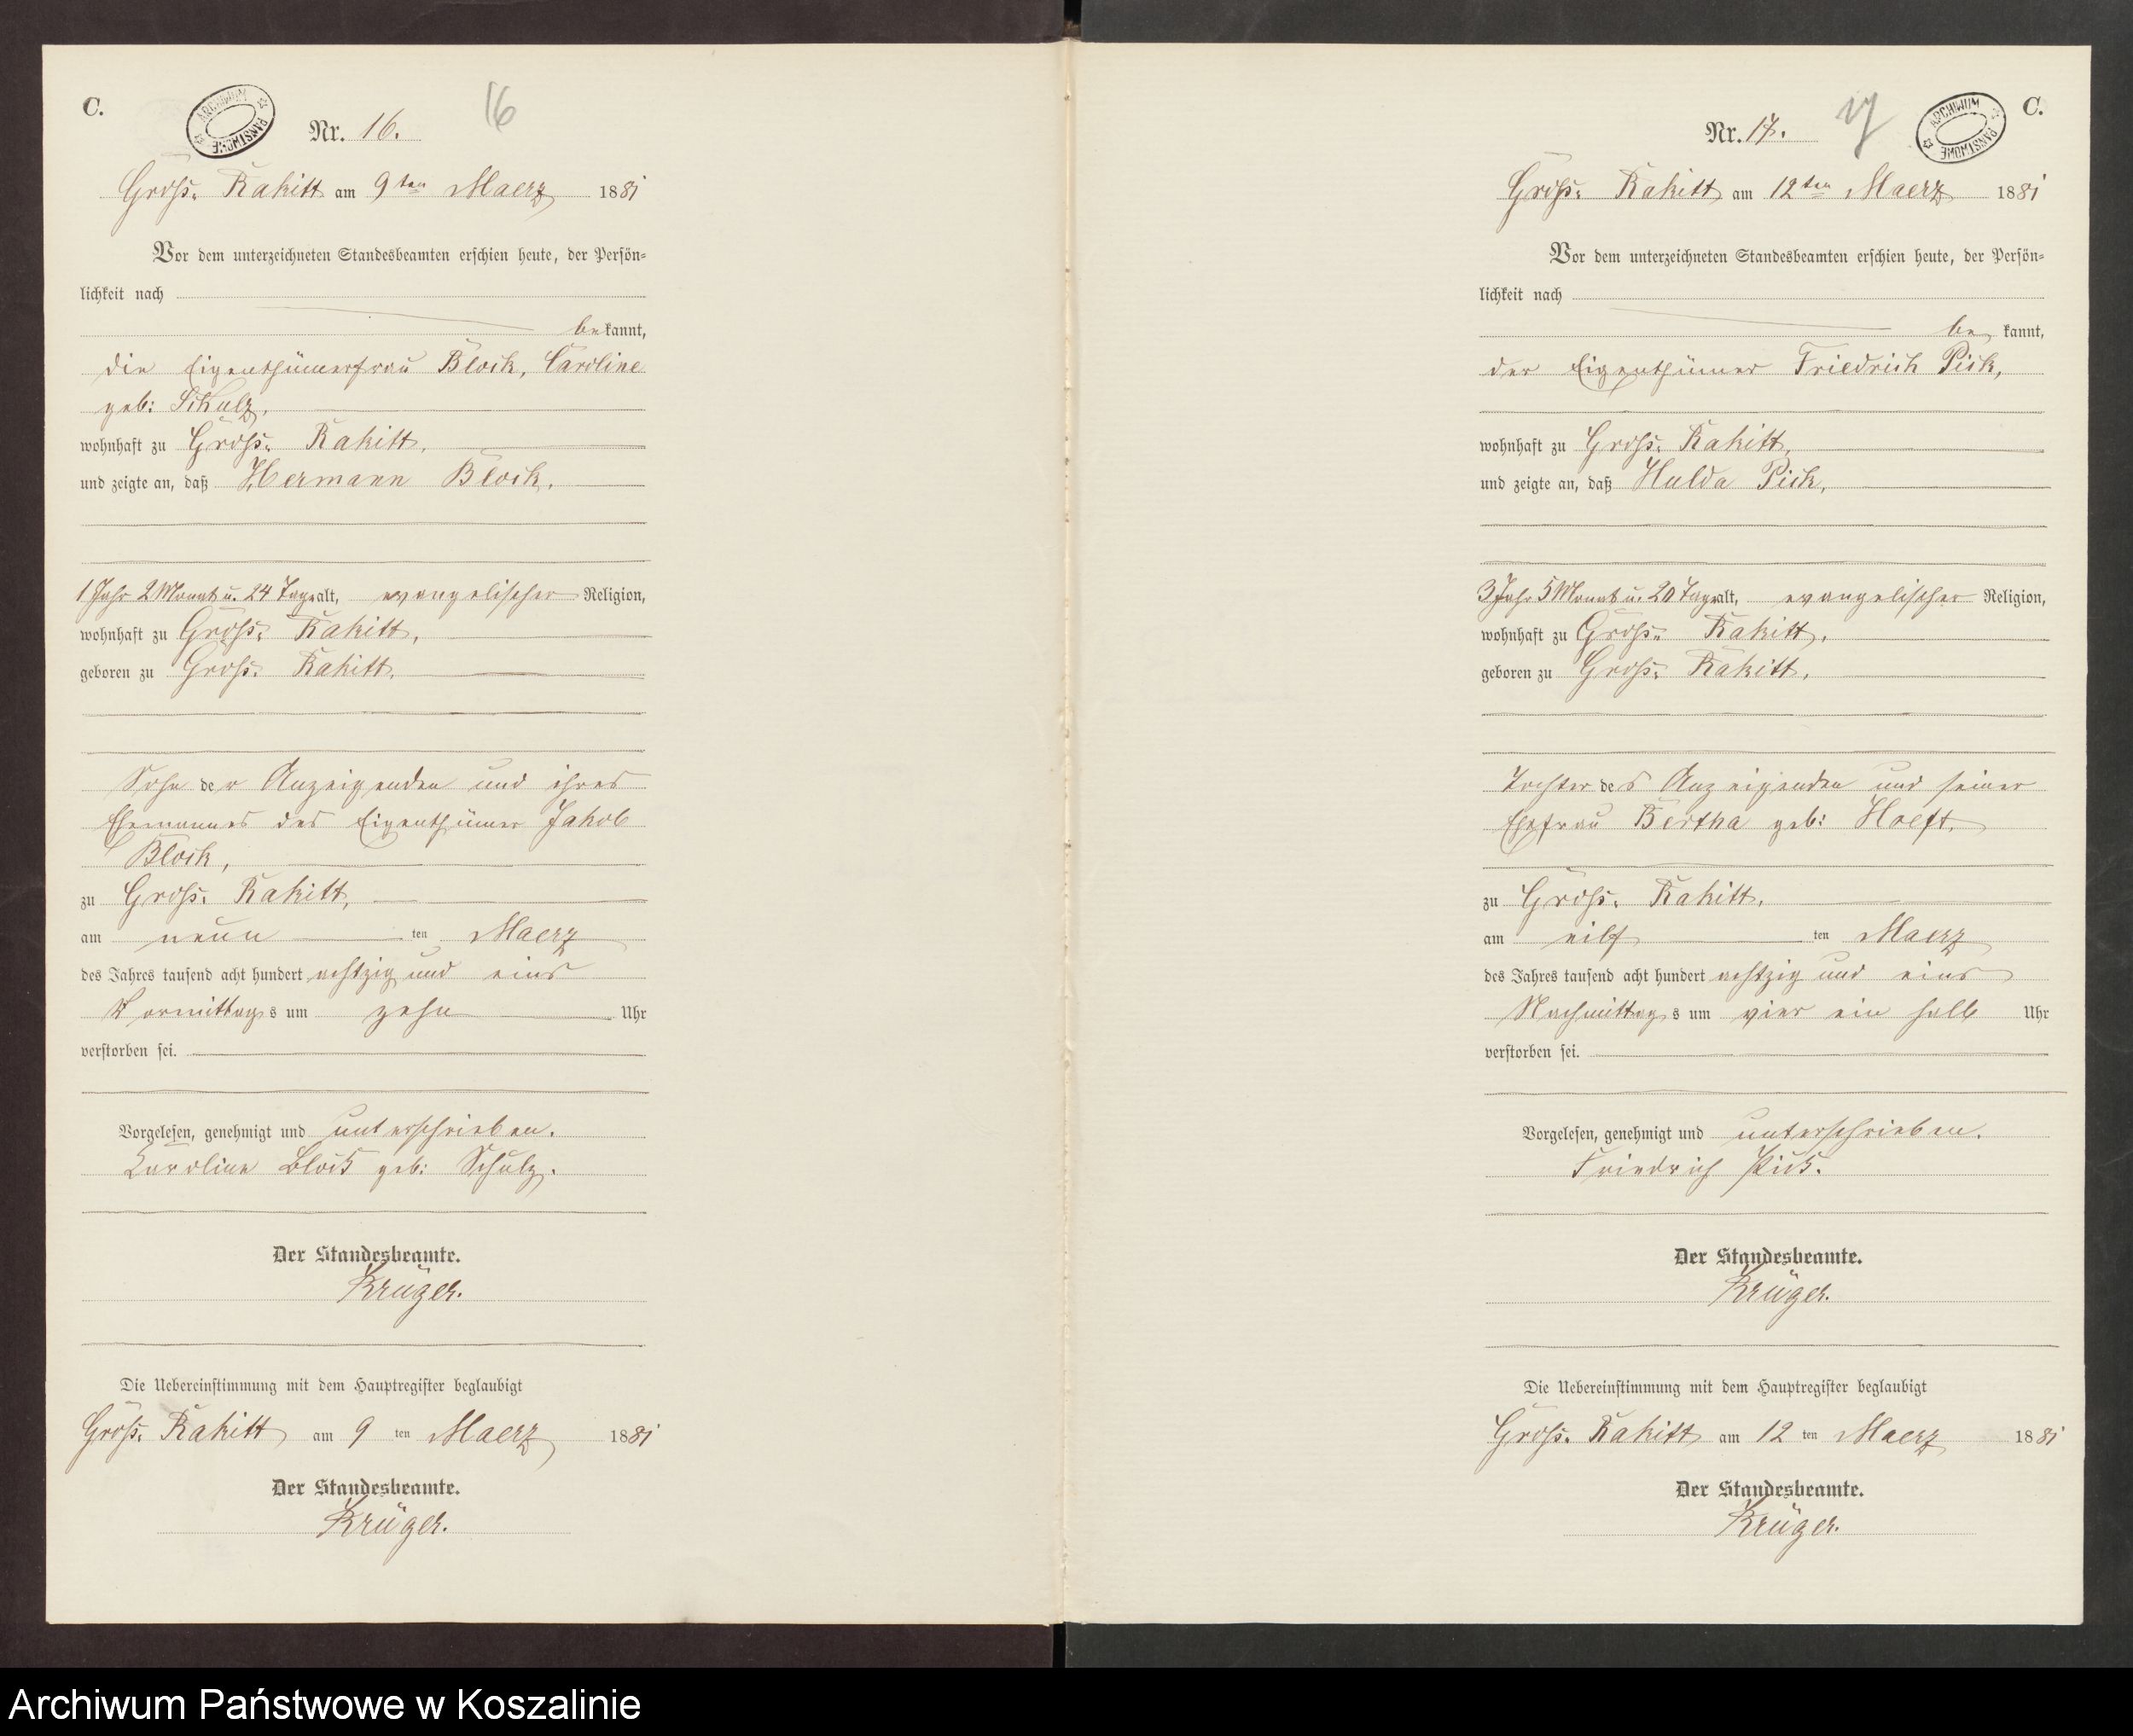 C.
ARCHIWUM PAŃSTWOWE
Nr. 16.
16
Gross-Rakitt am 9ten Maerz 1881
Vor dem unterzeichneten Standesbeamten erschien heute, der Persön-
lichkeit nach
bekannt,
die Eigenthümerfrau Block, Caroline
geb: Schulz,
wohnhaft zu Gross-Rakitt,
und zeigte an, daß Hermann Block,
1 Jahr 2 Monat u. 24 Tage alt, evangelischer Religion,
wohnhaft zu Gross-Rakitt,
geboren zu Gross-Rakitt,
Sohn der Anzeigenden und ihres
Ehemannes des Eigenthümer Jakob
Block,
zu Gross-Rakitt,
am neun ten Maerz
des Jahres tausend acht hundert achtzig und eins
Vormittags um zehn Uhr
verstorben sei.
Vorgelesen, genehmigt und unterschrieben.
Karoline Block geb: Schulz.
Der Standesbeamte.
Krüger.
Die Uebereinstimmung mit dem Hauptregister beglaubigt
Gross-Rakitt am 9 ten Maerz 1881
Der Standesbeamte.
Krüger.
C.
ARCHIWUM PAŃSTWOWE
Nr. 17.
17
Gross-Rakitt am 12ten Maerz 1881
Vor dem unterzeichneten Standesbeamten erschien heute, der Persön-
lichkeit nach
bekannt,
der Eigenthümer Friedrich Pick,
wohnhaft zu Gross-Rakitt,
und zeigte an, daß Hulda Pick,
3 Jahr 5 Monat u. 20 Tage alt, evangelischer Religion,
wohnhaft zu Gross-Rakitt,
geboren zu Gross-Rakitt,
Tochter des Anzeigenden und seiner
Ehefrau Bertha geb: Hoeft,
zu Gross-Rakitt,
am eilf ten Maerz
des Jahres tausend acht hundert achtzig und eins
Nachmittags um vier ein halb Uhr
verstorben sei.
Vorgelesen, genehmigt und unterschrieben.
Friedrich Pick.
Der Standesbeamte.
Krüger.
Die Uebereinstimmung mit dem Hauptregister beglaubigt
Gross-Rakitt am 12 ten Maerz 1881
Der Standesbeamte.
Krüger.
Archiwum Państwowe w Koszalinie